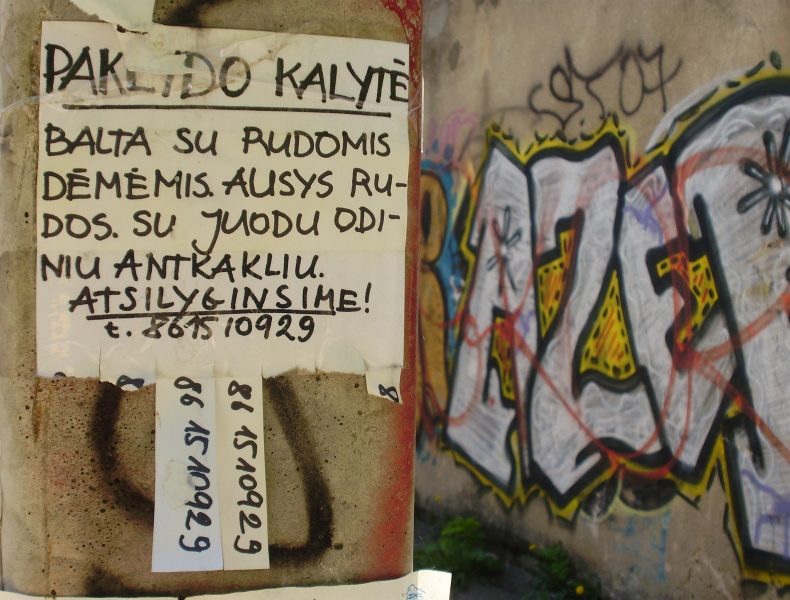 PAKLYDO KALYTĖ
BALTA SU RUDOMIS
DĖMĖMIS. AUSYS RU-
DOS. SU JUODU ODI-
NIU ANTKAKLIU.
ATSILYGINSIME!
t. 861510929
8
86 1510929
86 1510929
8
ST07
AZER